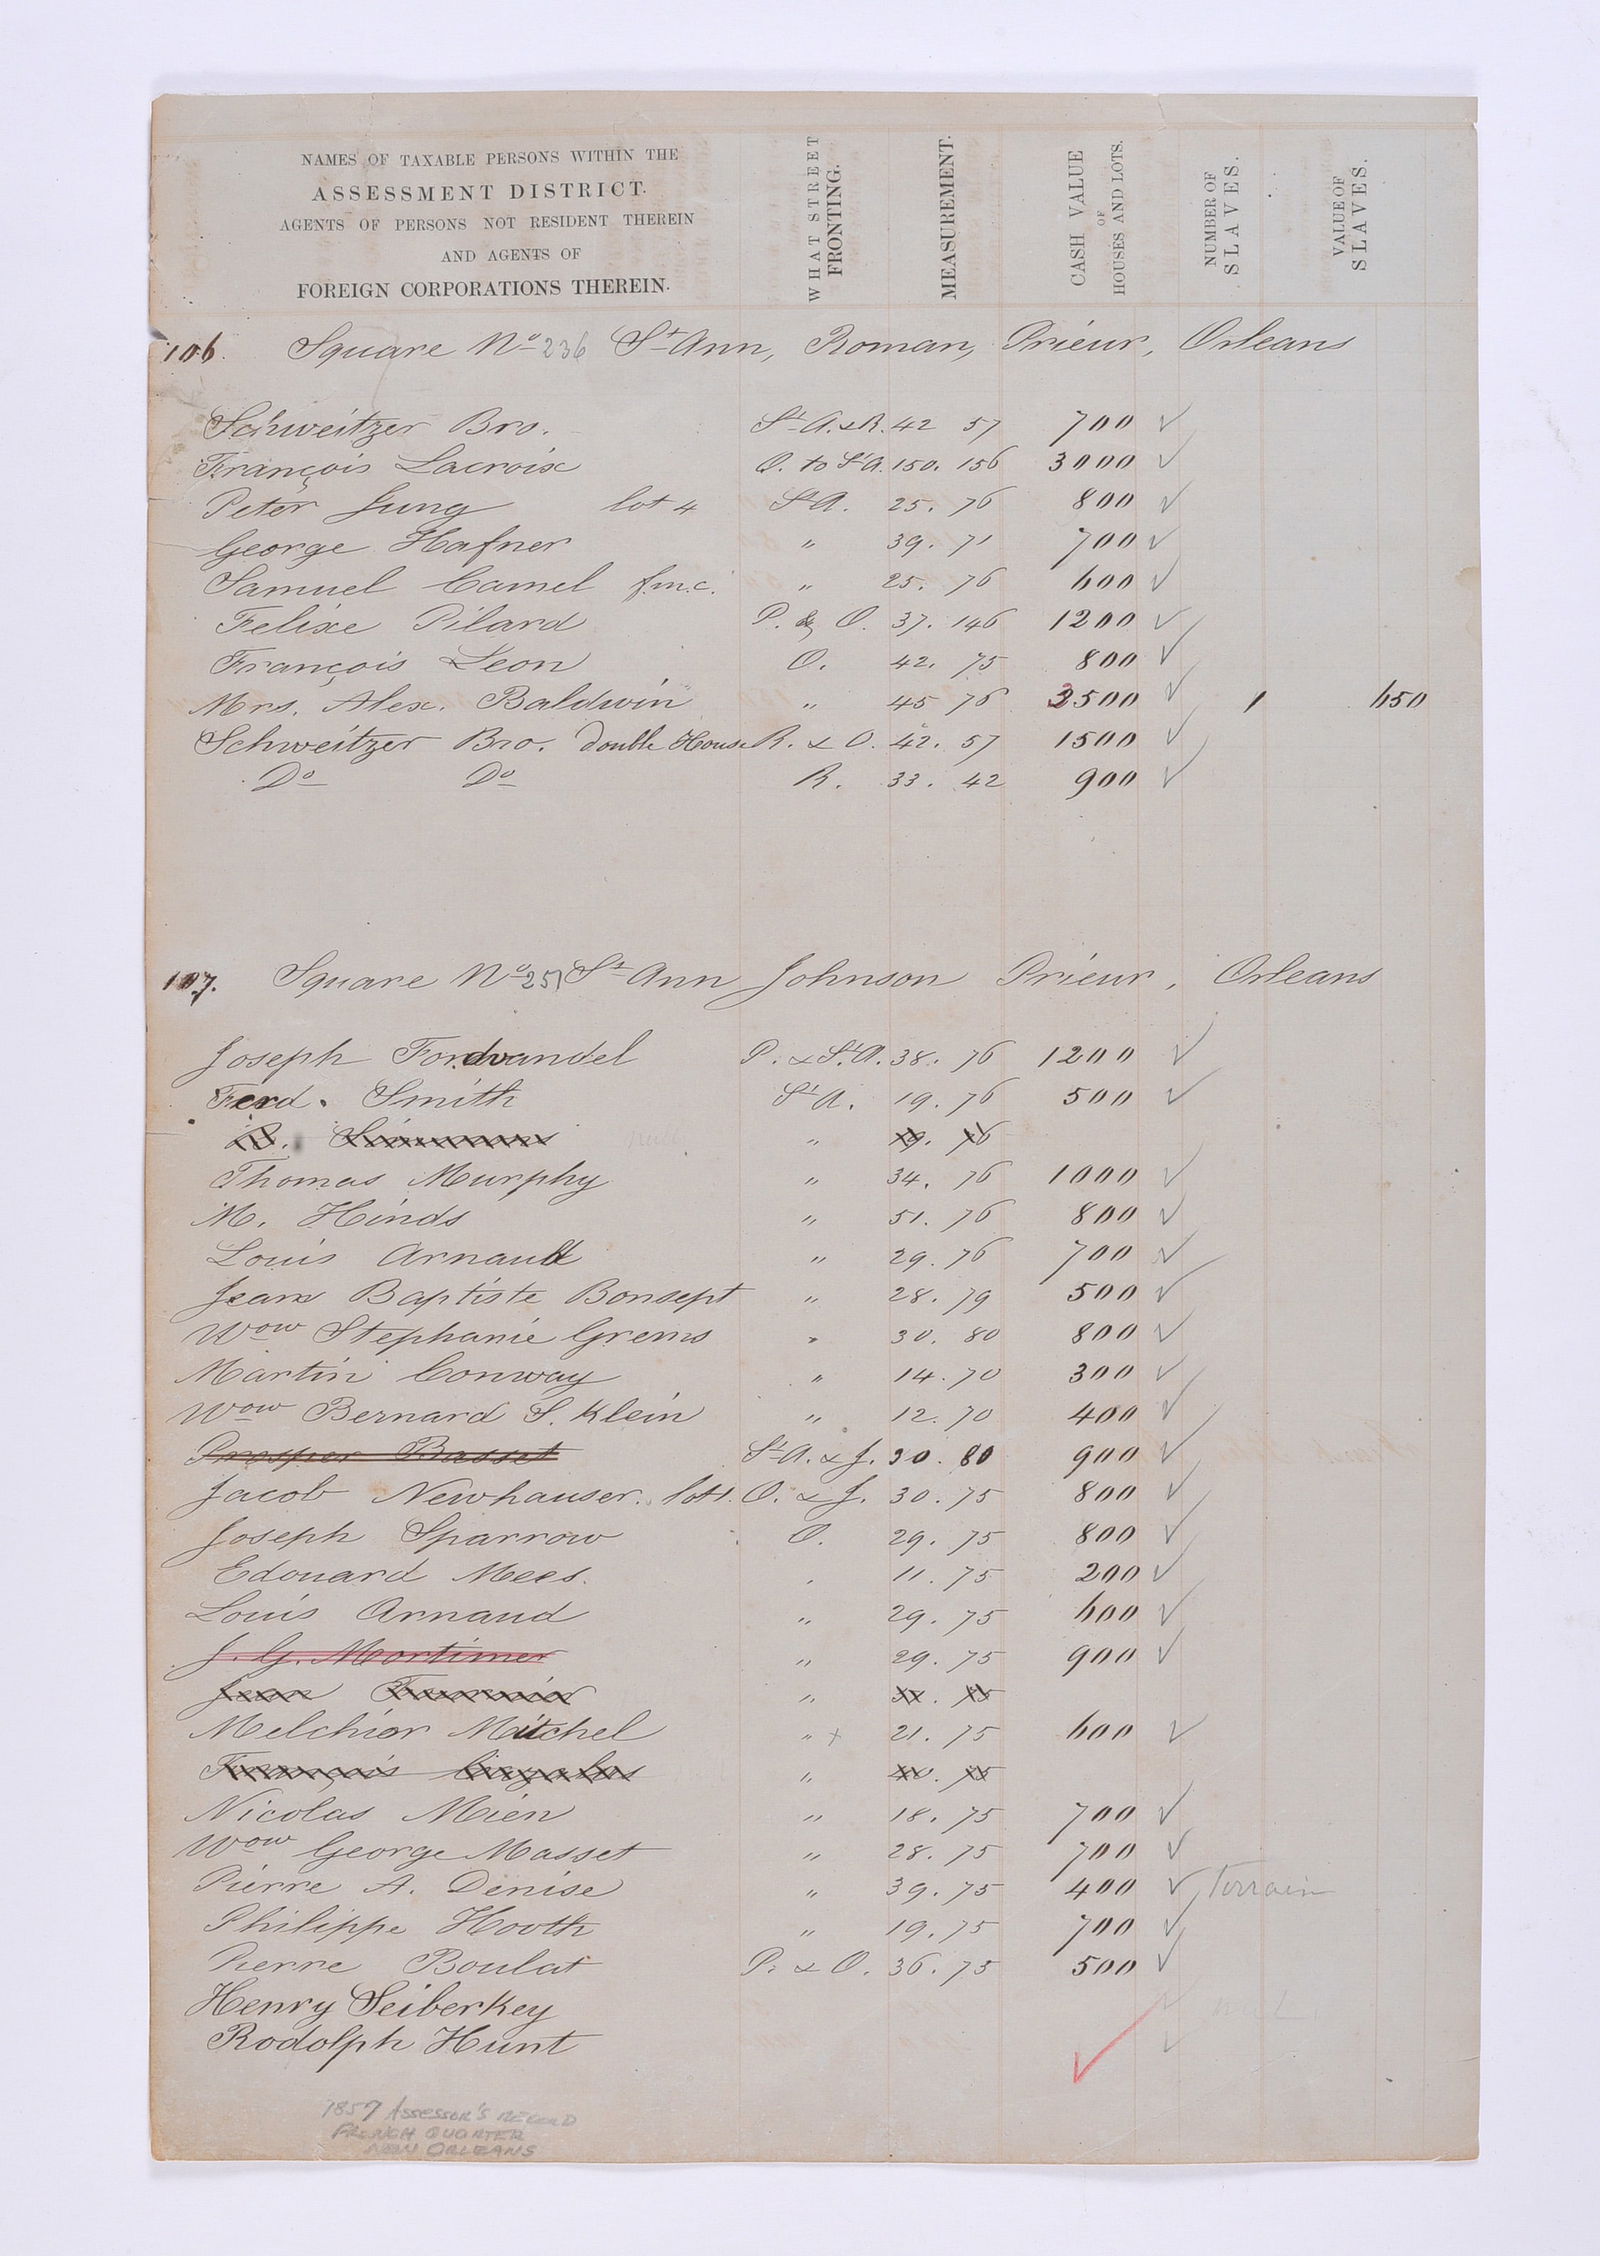 NAMES OF TAXABLE PERSONS WITHIN THE
ASSESSMENT DISTRICT.
AGENTS OF PERSONS NOT RESIDENT THEREIN
AND AGENTS OF
FOREIGN CORPORATIONS THEREIN.
WHAT STREET FRONTING.
MEASUREMENT.
CASH VALUE OF HOUSES AND LOTS.
NUMBER OF SLAVES.
VALUE OF SLAVES.
106. Square No 236 St Ann, Roman, Prieur, Orleans
Schweitzer Bro. St A. & R. 42 57 700 ✓
François Lacroix O. to St A. 150. 156 3000 ✓
Peter Jung lot 4 St A. 25. 76 800 ✓
George Hafner " 39. 71 700 ✓
Samuel Camel f.m.c. " 25. 76 600 ✓
Felixe Pilard P. & O. 37. 146 1200 ✓
François Leon O. 42. 75 800 ✓
Mrs. Alex. Baldwin " 45 76 3500 ✓ 1 650
Schweitzer Bro. double House R. & O. 42. 57 1500 ✓
Do Do R. 33. 42 900 ✓
107. Square No 251 St Ann Johnson Prieur, Orleans
Joseph Fordvandel P. & St. A. 38. 76 1200 ✓
Ferd. Smith St A. 19. 76 500 ✓
B. Simmons " 19. 76
Thomas Murphy " 34. 76 1000 ✓
M. Hinds " 51. 76 800 ✓
Louis Arnault " 29. 76 700 ✓
Jean Baptiste Bonsept " 28. 79 500 ✓
Wow Stephanie Grems " 30. 80 800 ✓
Martin Conway " 14. 70 300 ✓
Wow Bernard S. Klein " 12. 70 400 ✓
Prosper Basset St A. & J. 30. 80 900 ✓
Jacob Newhauser. lot 1. O. & J. 30. 75 800 ✓
Joseph Sparrow O. 29. 75 800 ✓
Edouard Mees. " 11. 75 200 ✓
Louis Arnaud " 29. 75 600 ✓
J. G. Mortimer " 29. 75 900 ✓
Jean " 75
Melchior Mitchel " + 21. 75 600 ✓
François " 75
Nicolas Mien " 18. 75 700 ✓
Wow George Masset " 28. 75 700 ✓
Pierre A. Denise " 39. 75 400 ✓ Terrain
Philippe Hooth " 19. 75 700 ✓
Pierre Boulat P. & O. 36. 75 500 ✓
Henry Seiberkey
Rodolph Hunt ✓ ✓
1857 ASSESSOR'S RECORD
FRENCH QUARTER
NEW ORLEANS